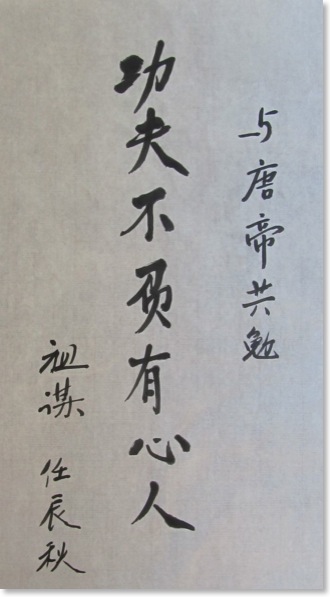 与唐帝共勉
功夫不负有心人
祖谋 任辰秋